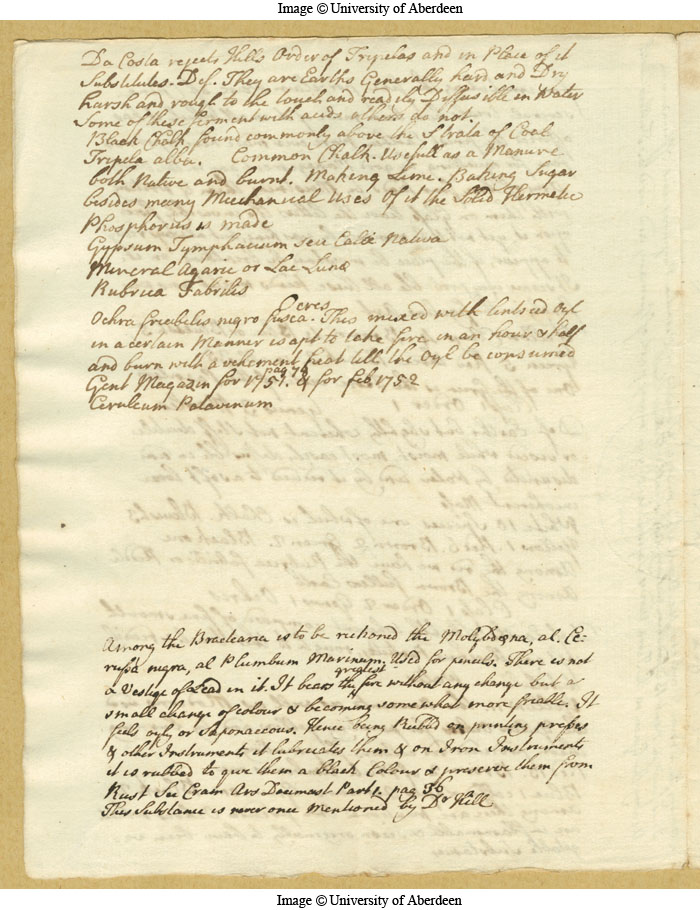 Image © University of Aberdeen
Da Costa rejects Hills Order of Tripelas and in Place of it
Substitutes. Def. They are Earths Generally hard and Dry
harsh and rough to the touch and readily Diffusible in Water
Some of these ferment with acids others do not.
Black Chalk found commonly above the Strata of Coal
Tripela alba. Common Chalk. Usefull as a Manure
both Native and burnt. Making Lime. Baking Sugar
besides many Mechanical Uses of it the Solid Hermetic
Phosphorus is made
Gypsum Tymphaicum seu Calx Nativa
Mineral Agaric or Lac Lunæ
Rubrica Fabrilis
Ocres
Ochra friabilis nigro fusca. This mixed with lintseed Oyl
in a certain Manner is apt to take fire in an hour & half
and burn with a vehement heat till the Oyl be consumed
Gent Magazin for 1751. & for feb 1752
Ceruleum Patavinum
Among the Bractearia is to be rickoned the Molybdæna, al. Ce-
russa nigra, al Plumbum Marinum. Used for pencils. There is not
a Vestige of Lead in it. It bears the greatest fire without any change but a
small change of colour & becoming some what more friable. It
feels oyly or saponaceous. Hence being Rubb'd on printing presses
& other Instruments it lubricates them & on Iron Instruments
it is rubbed to give them a black Colour & preserve them from
Rust See Cram Ars Docimast Part 1. pag 36
This Substance is never once Mentioned by Dr Hill
Image © University of Aberdeen